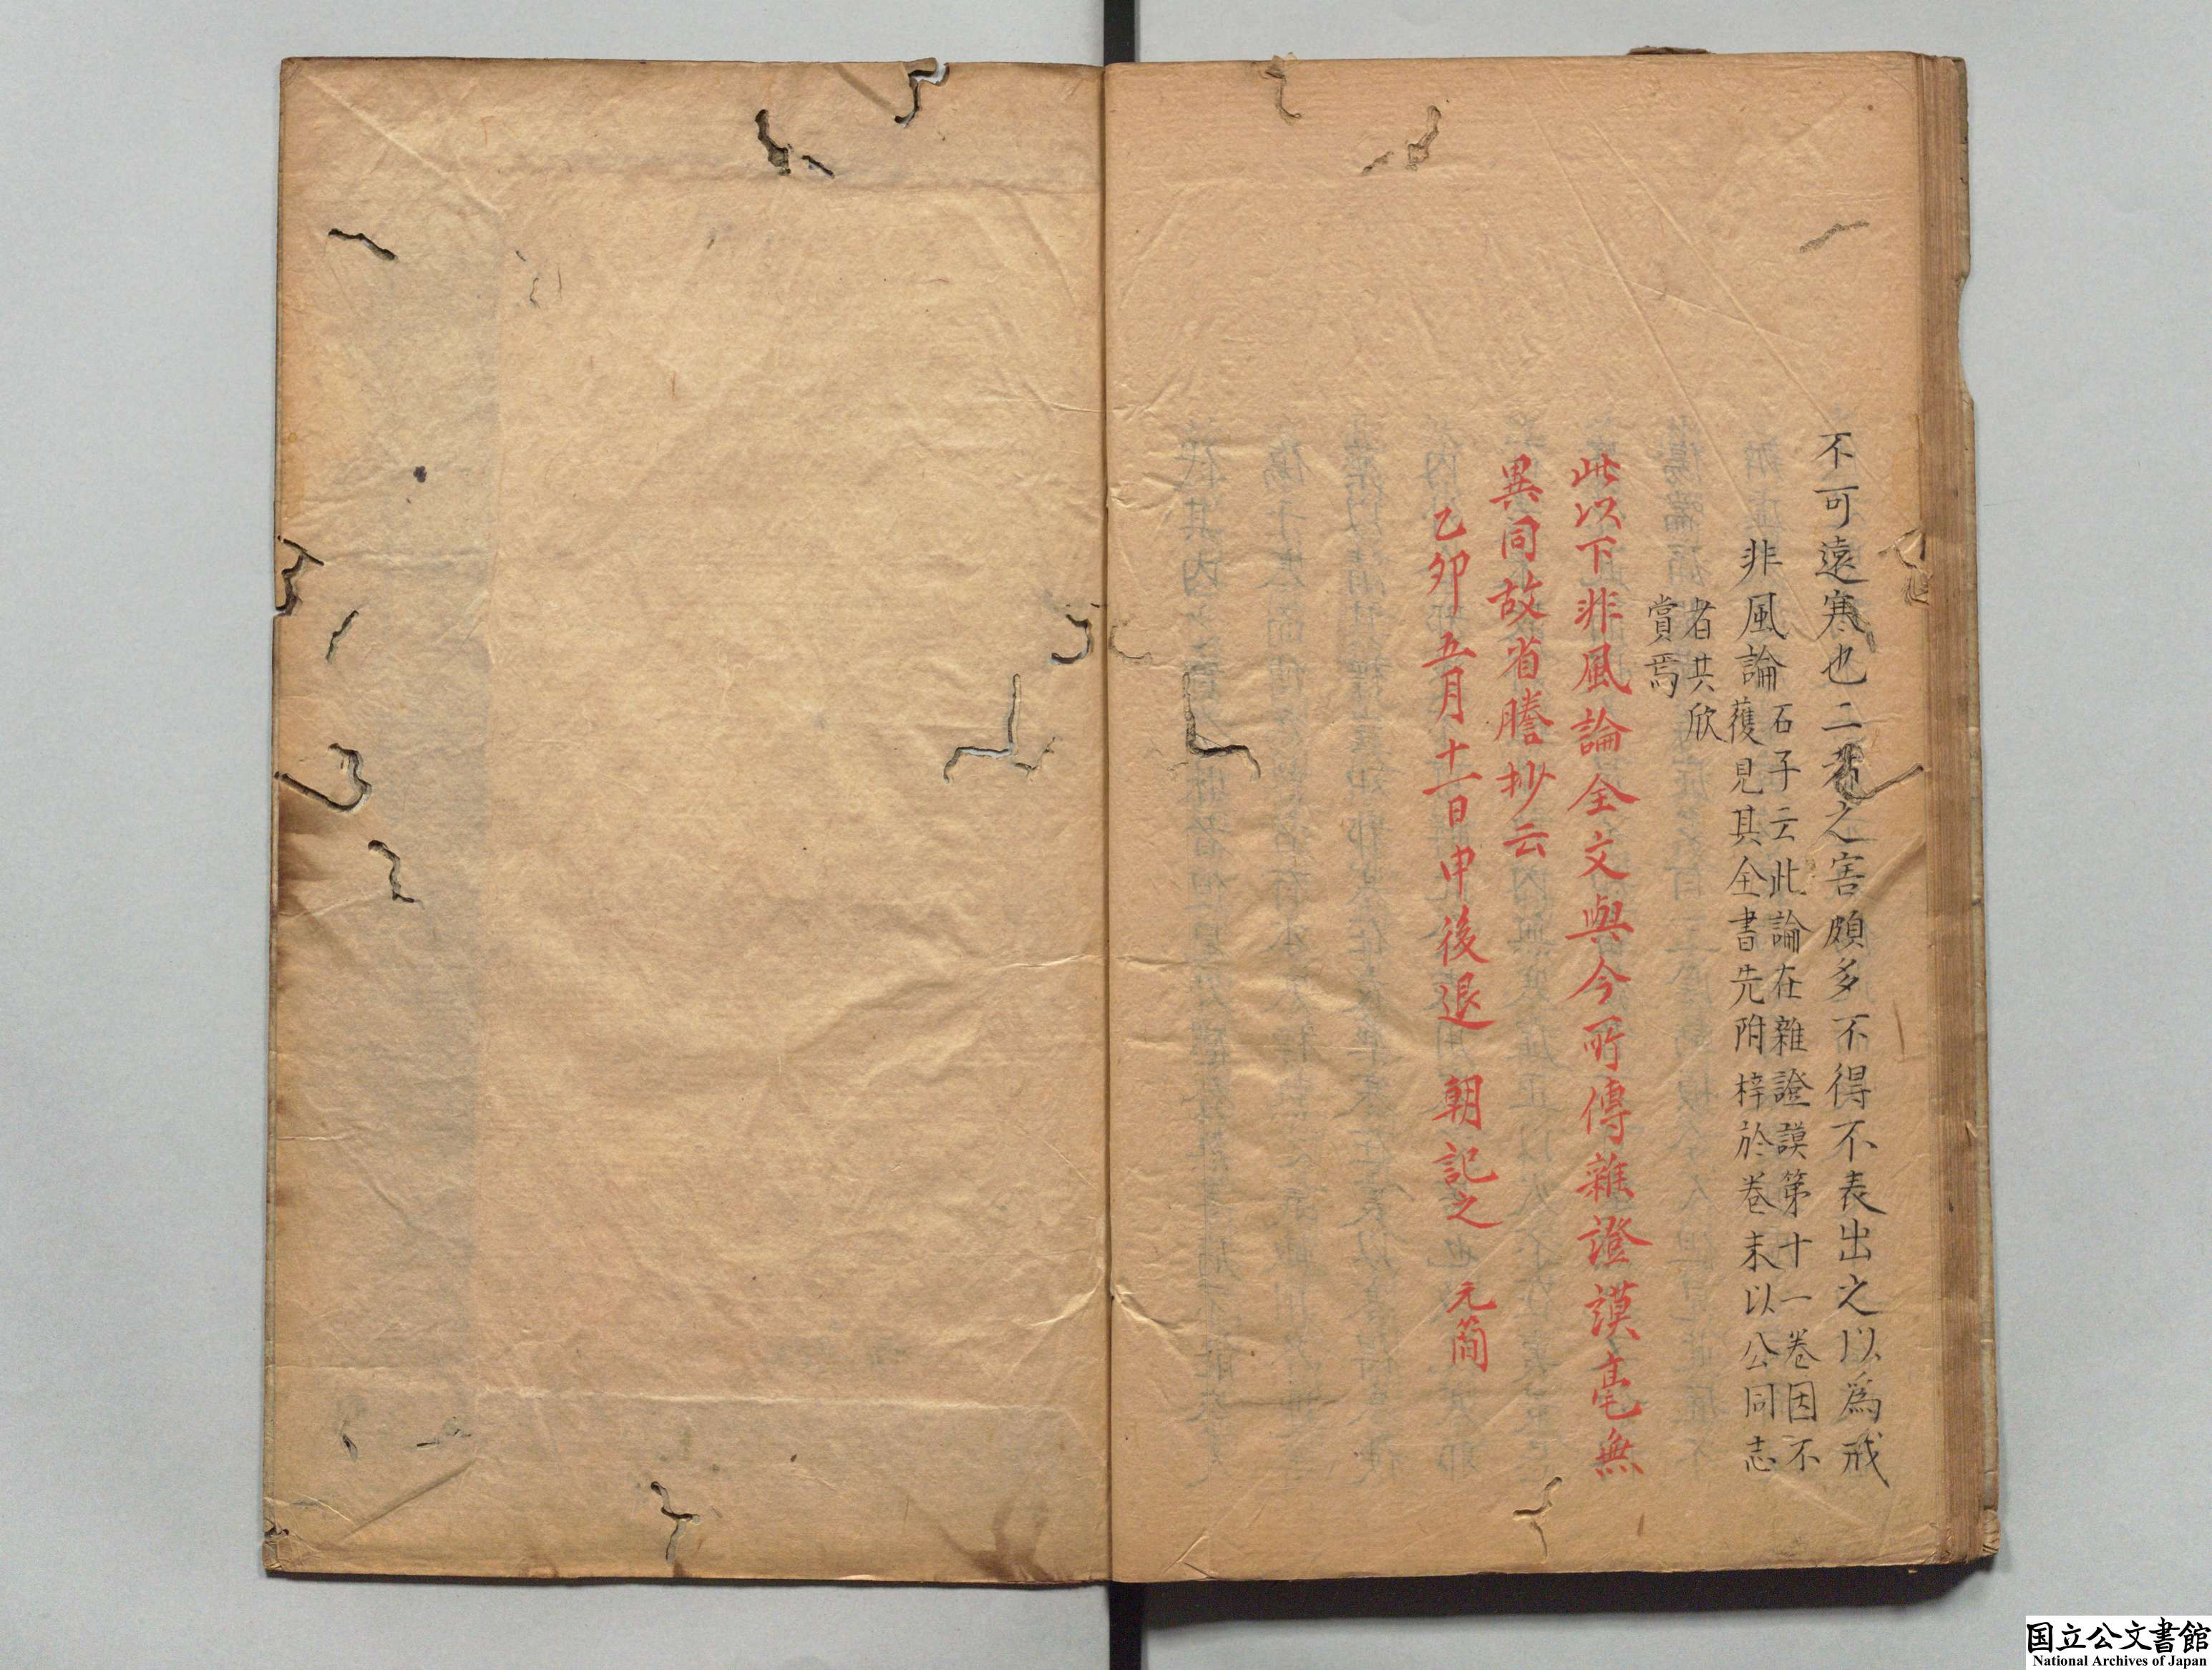 不可遠寒也二者之害頗多不得不表出之以爲戒
非風論
石子云此論在雜證謨第十一卷因不
獲見其全書先附梓於卷末以公同志
者共欣
賞焉
此以下非風論全文與今所傳雜證謨毫無
異同故省謄抄云
乙卯五月十一日申後退朝記之 元簡
国立公文書館
National Archives of Japan